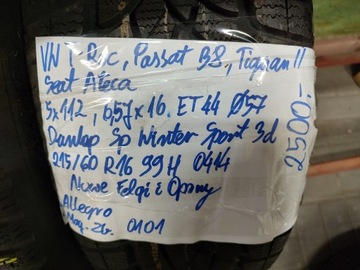 VW T-Roc, Passat B8, Tiguan II
Seat Ateca
5x112, 6,5J x 16. ET44 Ø57
Dunlop Sp Winter Sport 3d
215/60 R16 99H 0414
Nowe Felgi i Opony
Allegro
Mag. Zb. 0101
2500,-